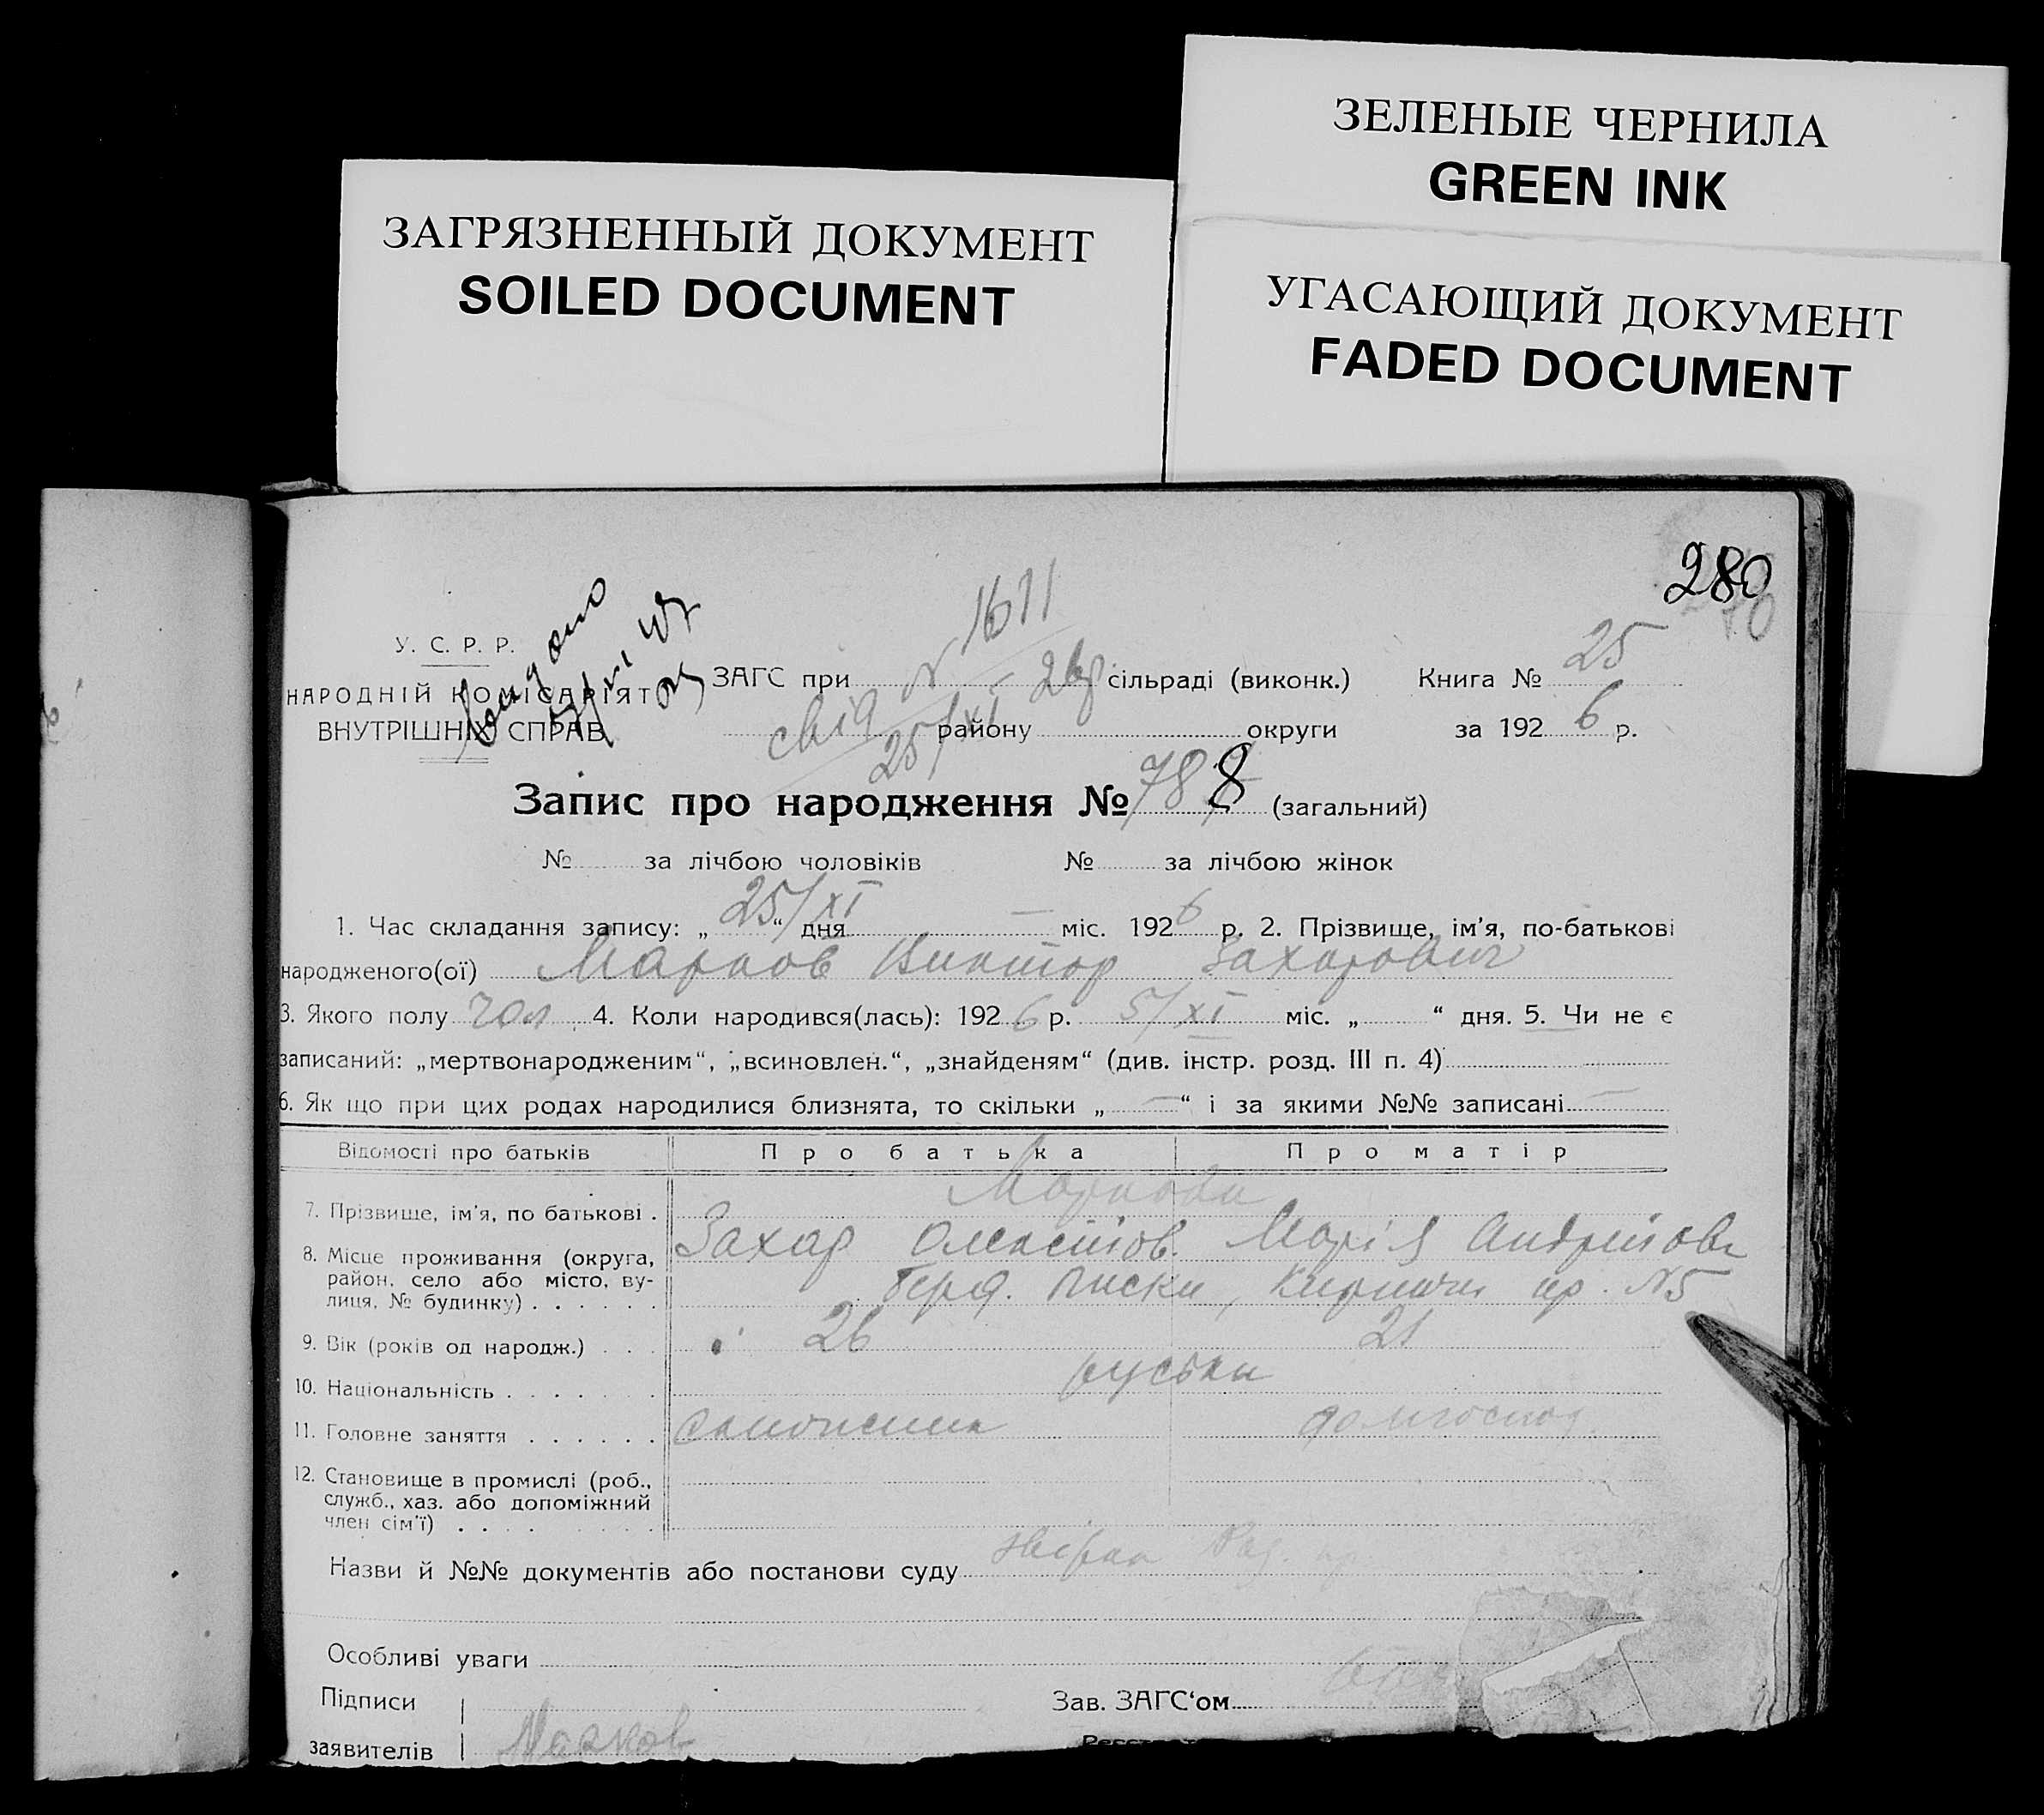 ЗЕЛЕНЫЕ ЧЕРНИЛА
GREEN INK
ЗАГРЯЗНЕННЫЙ ДОКУМЕНТ
SOILED DOCUMENT
УГАСАЮЩИЙ ДОКУМЕНТ
FADED DOCUMENT
280
У. С. Р. Р.
НАРОДНІЙ КОМІСАРІЯТ
ВНУТРІШНІХ СПРАВ
свід № 1611
25/XI 26р
ЗАГС при сільраді (виконк.) Книга № 25
району округи за 1926 р.
Запис про народження № 788 (загальний)
№ за лічбою чоловіків № за лічбою жінок
1. Час складання запису: „25/XI“ дня — міс. 1926 р. 2. Прізвище, ім'я, по-батькові
народженого(ої) Марков Виктор Захарович
3. Якого полу чол 4. Коли народився(лась): 1926 р. 5/XI міс. „ “ дня. 5. Чи не є
записаний: „мертвонародженим“, „всиновлен.“, „знайденям“ (див. інстр. розд. III п. 4)
6. Як що при цих родах народилися близнята, то скільки „—“ і за якими №№ записані —
Відомості про батьків Про батька Про матір
7. Прізвище, ім'я, по батькові . Маркови
Захар Олексійов. Марія Андрійовн
8. Місце проживання (округа,
район, село або місто, ву-
лиця, № будинку) . . . . . . Берд. Лиски, Кирпичн пр. №5
9. Вік (років од народж.) . . . 26 21
10. Національність . . . . . . . руськи
11. Головне заняття . . . . . . домгоспод.
12. Становище в промислі (роб.,
служб., хаз. або допоміжний
член сім'ї) . . . . . . . .
Назви й №№ документів або постанови суду
Особливі уваги
Підписи Зав. ЗАГС‘ом
заявителів Марков